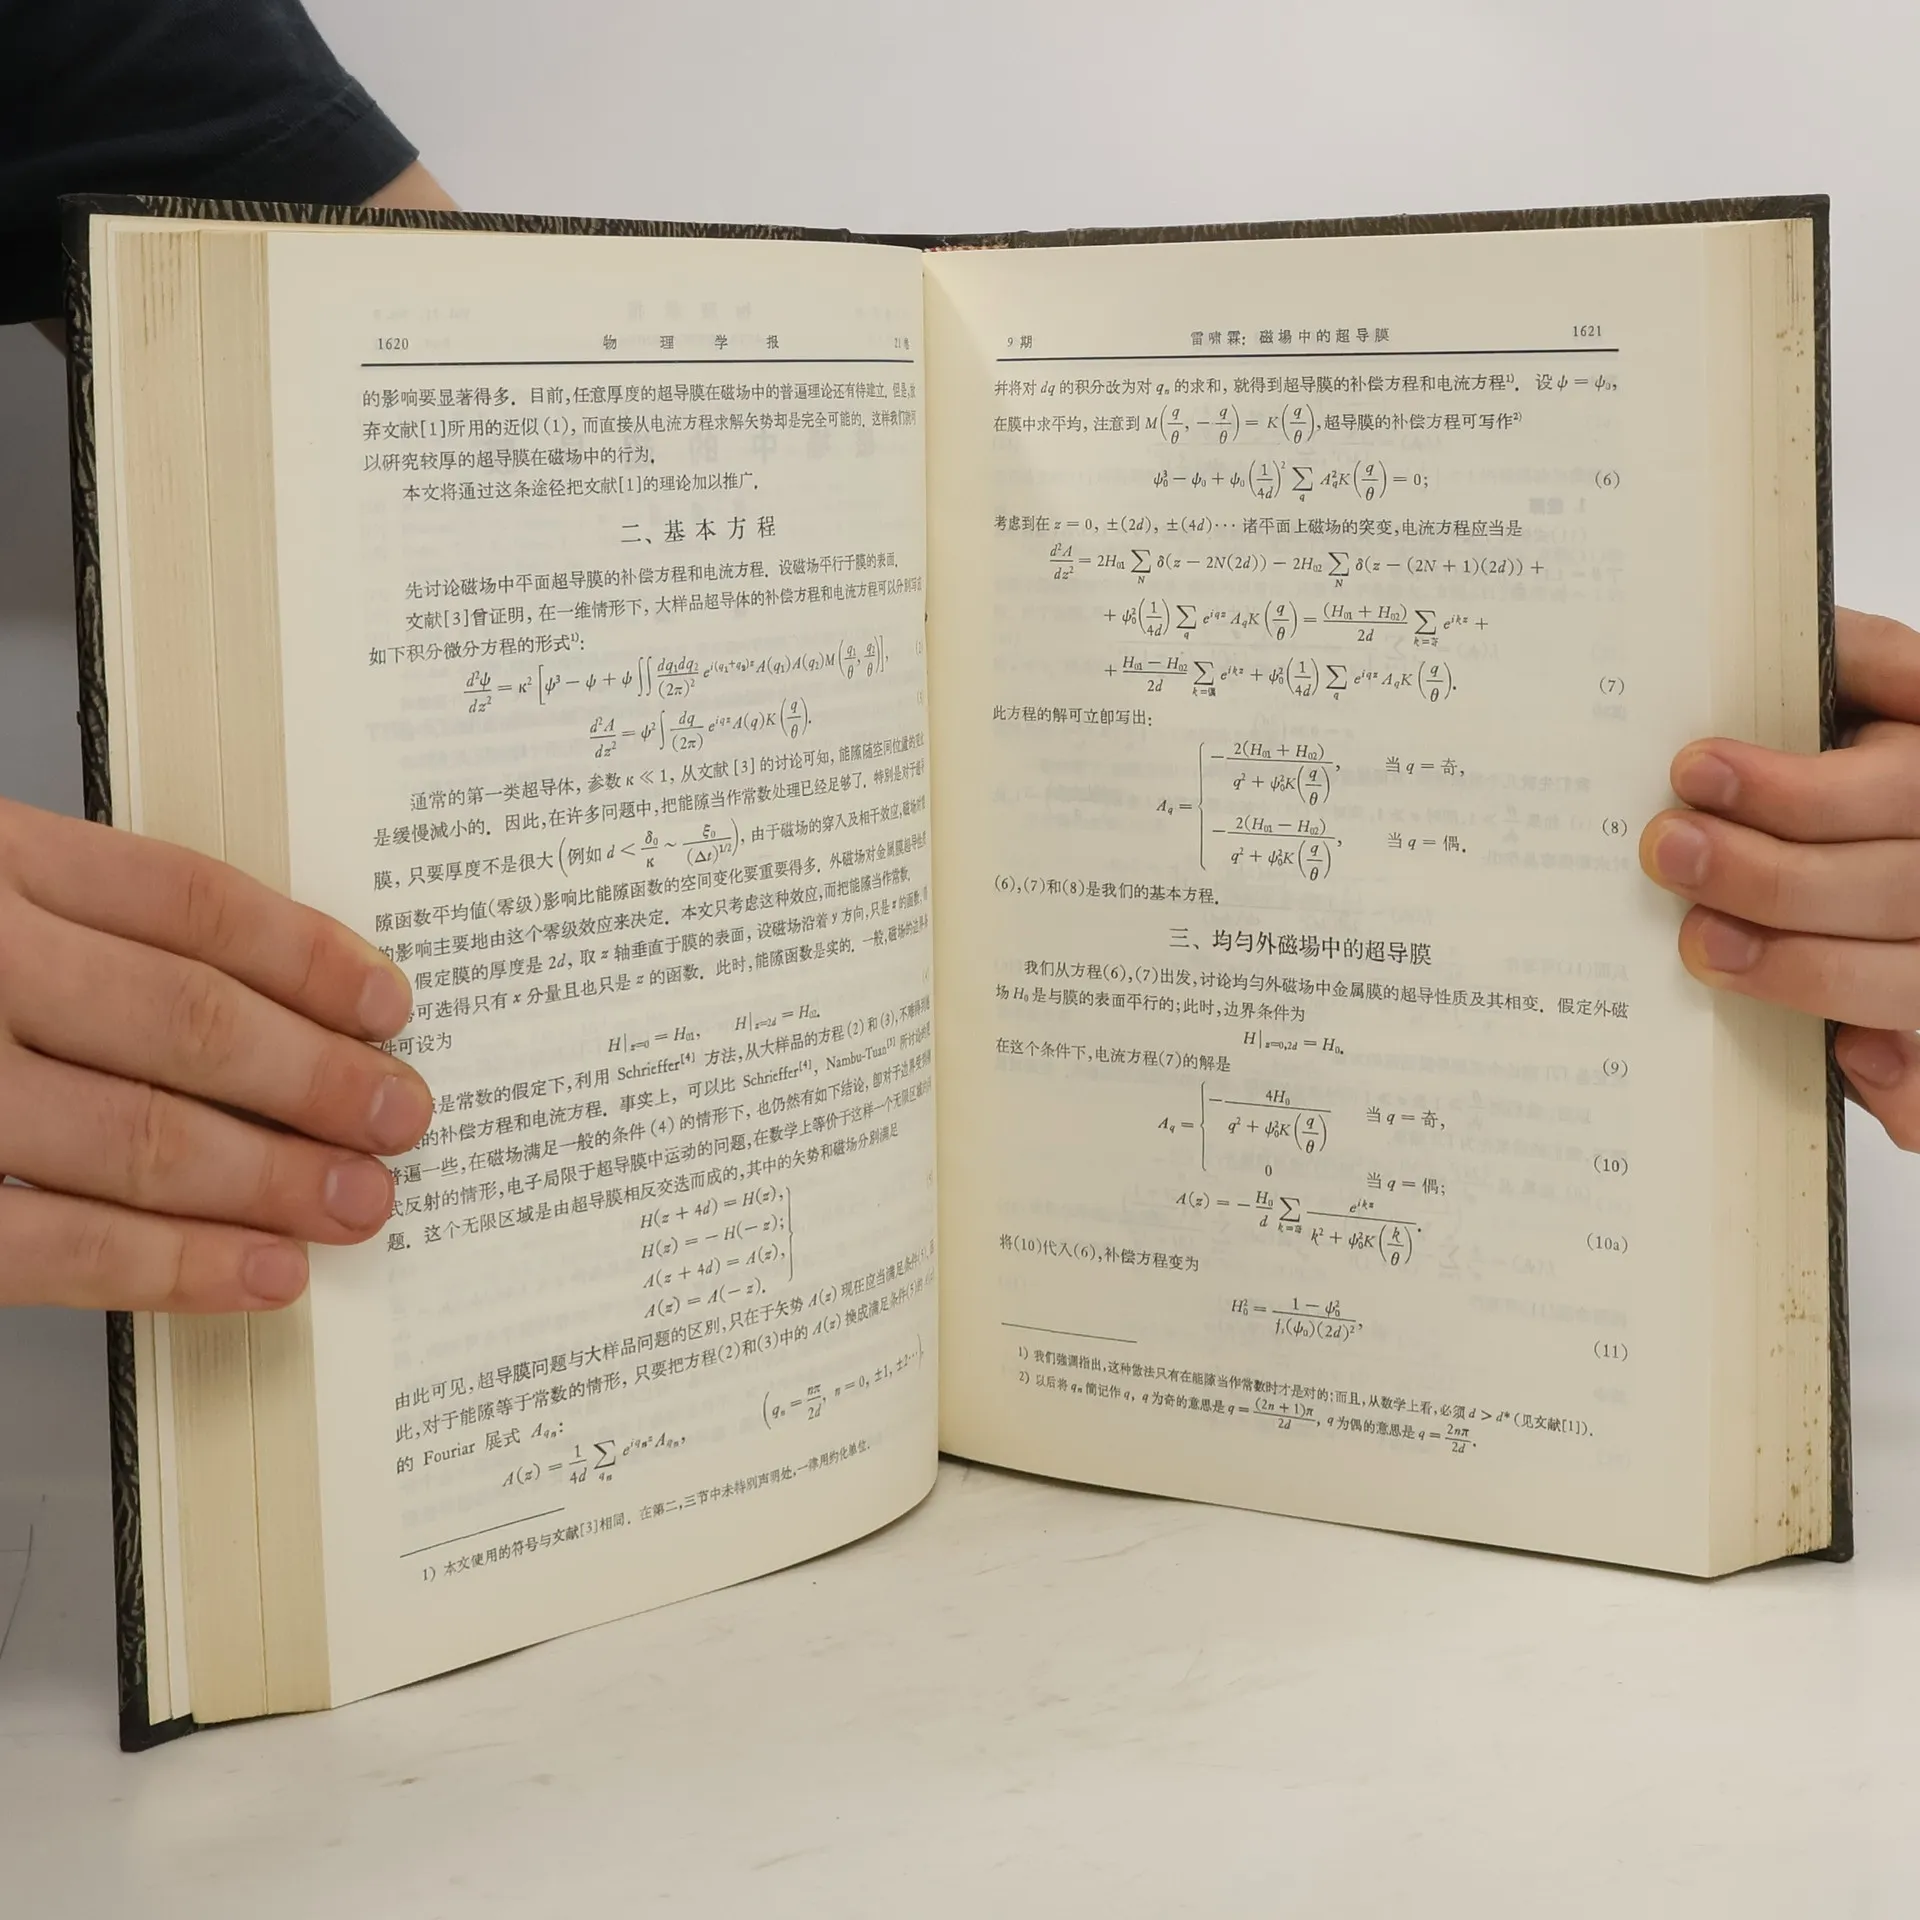 1620 物 理 学 报 21卷
的影响要显著得多．目前,任意厚度的超导膜在磁场中的普遍理论还有待建立．但是,放
弃文献[1]所用的近似(1)，而直接从电流方程求解矢势却是完全可能的．这样我们就可
以研究较厚的超导膜在磁场中的行为．
本文将通过这条途径把文献[1]的理论加以推广．
二、基本方程
先讨论磁场中平面超导膜的补偿方程和电流方程．设磁场平行于膜的表面．
文献[3]曾证明，在一维情形下，大样品超导体的补偿方程和电流方程可以分别写成
如下积分微分方程的形式¹⁾：
d²ψ/dz² = κ² [ψ³ − ψ + ψ ∬ dq₁dq₂/(2π)² e^{i(q₁+q₂)z} A(q₁)A(q₂)M(q₁/θ, q₂/θ)], (2)
d²A/dz² = ψ² ∫ dq/(2π) e^{iqz} A(q)K(q/θ). (3)
通常的第一类超导体，参数 κ ≪ 1，从文献[3]的讨论可知，能隙随空间位置的变化
是缓慢减小的．因此,在许多问题中,把能隙当作常数处理已经足够了．特别是对于超导
膜，只要厚度不是很大(例如 d < δ₀/κ ~ ξ₀/(Δt)^{1/2})，由于磁场的穿入及相干效应,磁场对能
隙函数平均值(零级)影响比能隙函数的空间变化要重要得多．外磁场对金属膜超导性质
的影响主要地由这个零级效应来决定．本文只考虑这种效应,而把能隙当作常数．
假定膜的厚度是 2d，取 z 轴垂直于膜的表面，设磁场沿着 y 方向,只是 z 的函数;
可选得只有 x 分量且也只是 z 的函数．此时，能隙函数是实的．一般,磁场的边界条
件可设为 (4)
H|_{z=0} = H₀₁, H|_{z=2d} = H₀₂.
是常数的假定下,利用 Schrieffer[4] 方法,从大样品的方程(2)和(3),不难得到超
的补偿方程和电流方程．事实上，可以比 Schrieffer[4]，Nambu-Tuan[5] 所讨论的更
普遍一些,在磁场满足一般的条件(4)的情形下，也仍然有如下结论，即对于边界受到镜
式反射的情形,电子局限于超导膜中运动的问题,在数学上等价于这样一个无限区域的问
题．这个无限区域是由超导膜相反交迭而成的,其中的矢势和磁场分别满足
H(z + 4d) = H(z),
H(z) = − H(− z); (5)
A(z + 4d) = A(z),
A(z) = A(− z).
由此可见,超导膜问题与大样品问题的区别,只在于矢势 A(z) 现在应当满足条件(5)．因
此,对于能隙等于常数的情形，只要把方程(2)和(3)中的 A(z) 换成满足条件(5)的
的 Fouriar 展式 A_{qₙ}:
A(z) = 1/4d ∑_{qₙ} e^{iqₙz} A_{qₙ}, (qₙ = nπ/2d, n = 0, ±1, ±2…),
1) 本文使用的符号与文献[3]相同．在第二,三节中未特别声明处,一律用约化单位．
9 期 雷啸霖: 磁場中的超导膜 1621
并将对 dq 的积分改为对 qₙ 的求和，就得到超导膜的补偿方程和电流方程¹⁾．设 ψ = ψ₀,
在膜中求平均，注意到 M(q/θ, − q/θ) = K(q/θ),超导膜的补偿方程可写作²⁾
ψ₀³ − ψ₀ + ψ₀(1/4d)² ∑_q A_q²K(q/θ) = 0; (6)
考虑到在 z = 0, ±(2d), ±(4d)··· 诸平面上磁场的突变,电流方程应当是
d²A/dz² = 2H₀₁ ∑_N δ(z − 2N(2d)) − 2H₀₂ ∑_N δ(z − (2N + 1)(2d)) +
+ ψ₀²(1/4d) ∑_q e^{iqz} A_qK(q/θ) = (H₀₁ + H₀₂)/2d ∑_{k=奇} e^{ikz} +
+ H₀₁ − H₀₂/2d ∑_{k=偶} e^{ikz} + ψ₀²(1/4d) ∑_q e^{iqz} A_qK(q/θ). (7)
此方程的解可立即写出:
A_q = { − 2(H₀₁ + H₀₂)/(q² + ψ₀²K(q/θ)), 当 q = 奇,
− 2(H₀₁ − H₀₂)/(q² + ψ₀²K(q/θ)), 当 q = 偶． (8)
(6),(7)和(8)是我们的基本方程．
三、均匀外磁場中的超导膜
我们从方程(6),(7)出发,讨论均匀外磁场中金属膜的超导性质及其相变．假定外磁
场 H₀ 是与膜的表面平行的;此时,边界条件为
H|_{z=0,2d} = H₀. (9)
在这个条件下,电流方程(7)的解是
A_q = { − 4H₀/(q² + ψ₀²K(q/θ)) 当 q = 奇,
0 当 q = 偶; (10)
A(z) = − H₀/d ∑_{k=奇} e^{ikz}/(k² + ψ₀²K(k/θ)). (10a)
将(10)代入(6),补偿方程变为
H₀² = (1 − ψ₀²)/(f₁(ψ₀)(2d)²), (11)
1) 我们強调指出,这种做法只有在能隙当作常数时才是对的;而且,从数学上看,必须 d > d* (见文献[1])．
2) 以后将 qₙ 简记作 q，q 为奇的意思是 q = (2n + 1)π/2d，q 为偶的意思是 q = 2nπ/2d．